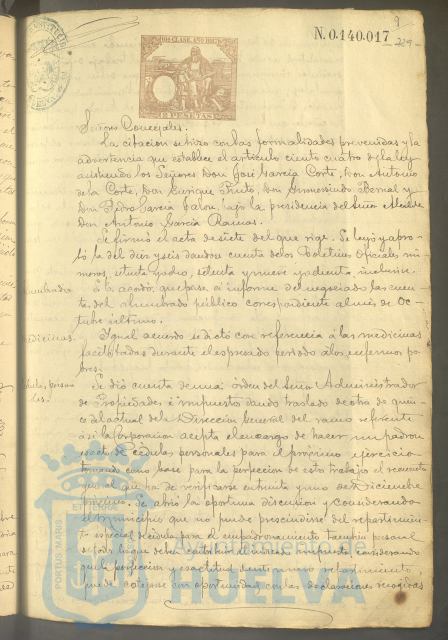 9
N. 0.140.017
229
10ª CLASE. AÑO 1887
2 PESETAS
Señores Concejales.
La citacion se hizo con las formalidades prevenidas y la
advertencia que establece el artículo ciento cuatro de la ley
asistiendo los Señores Don José García Corte, Don Antonio
de la Corte, Don Enrique Pinto, Don Gumersindo Bernal y
Don Pedro García Jalon, bajo la presidencia del Señor Alcalde
Don Antonio García Ramos.
Se firmó el acta de siete del que rige. Se leyó y apro-
bó la del diez y seis dandose cuenta de los Boletines Oficiales nú-
meros, setenta y ocho, setenta y nueve y ochenta inclusive.
Alumbrado
Se acordó, que pase á informe del negociado las cuen-
tas del alumbrado público correspondiente al mes de Oc-
tubre último.
Medicinas.
Igual acuerdo se dictó con referencia á las medicinas
facilitadas durante el espresado periodo á los enfermos po-
bres.
Se dió cuenta de una orden del Señor Administrador
de Propiedades é impuestos dando traslado de otra de quin-
ce del actual de la Direccion General del ramo referente
á si la Corporacion acepta el encargo de hacer un padron
exacto de cédulas personales para el próximo ejercicio
tomando como base para la perfeccion de este trabajo el recuento
general que ha de verificarse en treinta y uno de Diciembre
próximo. Se abrió la oportuna discusion y considerando
el municipio que no puede prescindirse del repartimien-
to especial de cédulas para el empadronamiento
considerando
que la perfeccion y exactitud
puede cotejarse con oportunidad con las declaraciones recogidas
ET TERRÆ
PORTUS MARIS
Ayuntamiento de
HUELVA